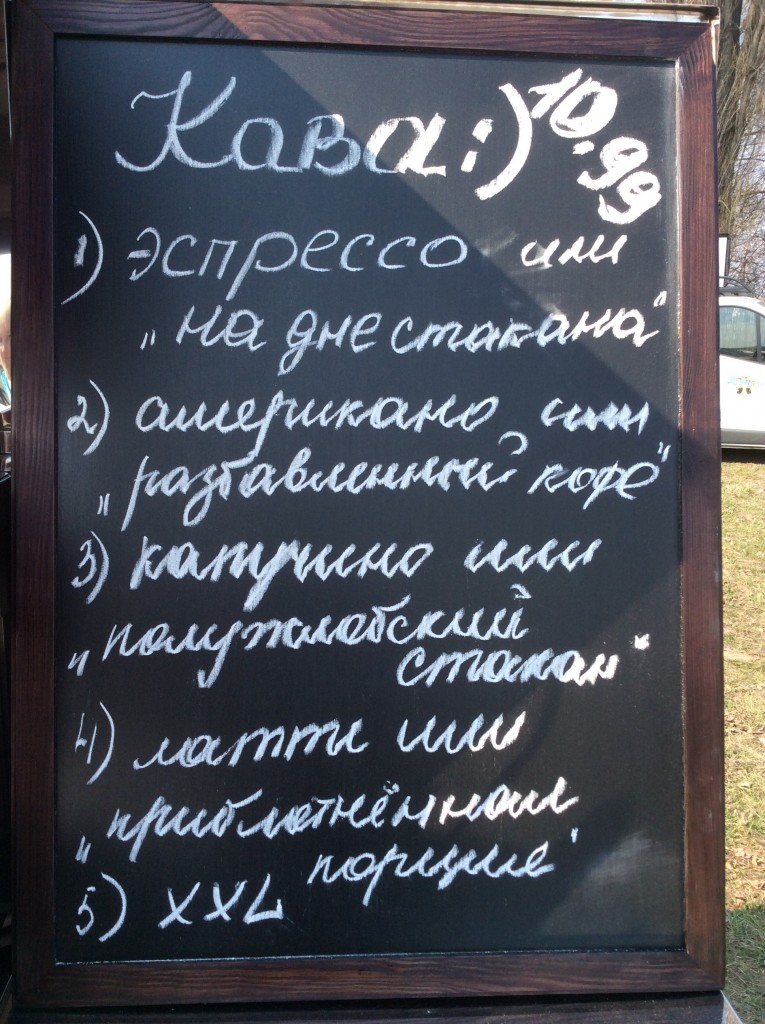 Кава :) 10.99
1) эспрессо или
"на дне стакана"
2) американо или
"разбавленный кофе"
3) капучино или
"полужлобский
стакан"
4) латти или
"приблатнённая
порция"
5) XXL